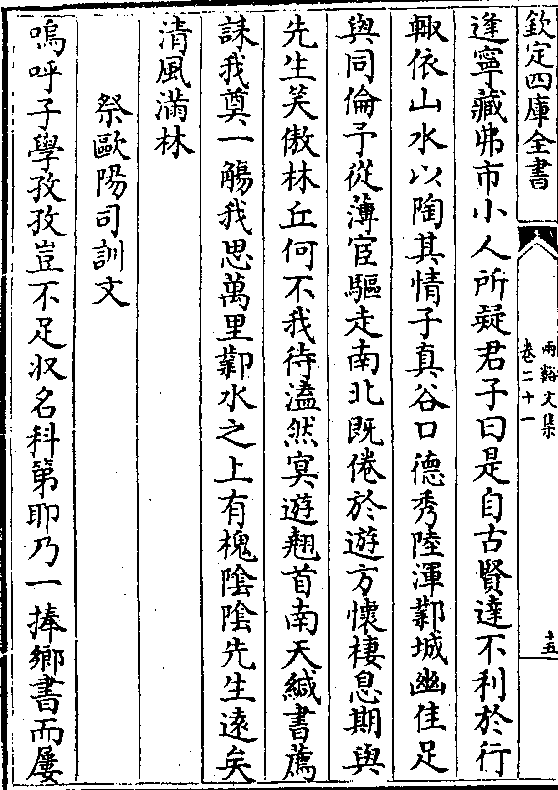 欽定四庫全書
兩谿文集
卷二十一
十五
逢寧藏弗市小人所疑君子曰是自古賢達不利於行
輙依山水以陶其情子真谷口德秀陸渾鄞城幽佳足
與同倫予從薄宦驅走南北既倦於遊方懷棲息期與
先生笑傲林丘何不我待溘然㝠遊翹首南天緘書薦
誄我奠一觴我思萬里鄞水之上有槐陰陰先生逺矣
清風滿林
祭歐陽司訓文
嗚呼子學孜孜豈不足収名科第耶乃一捧鄉書而屢